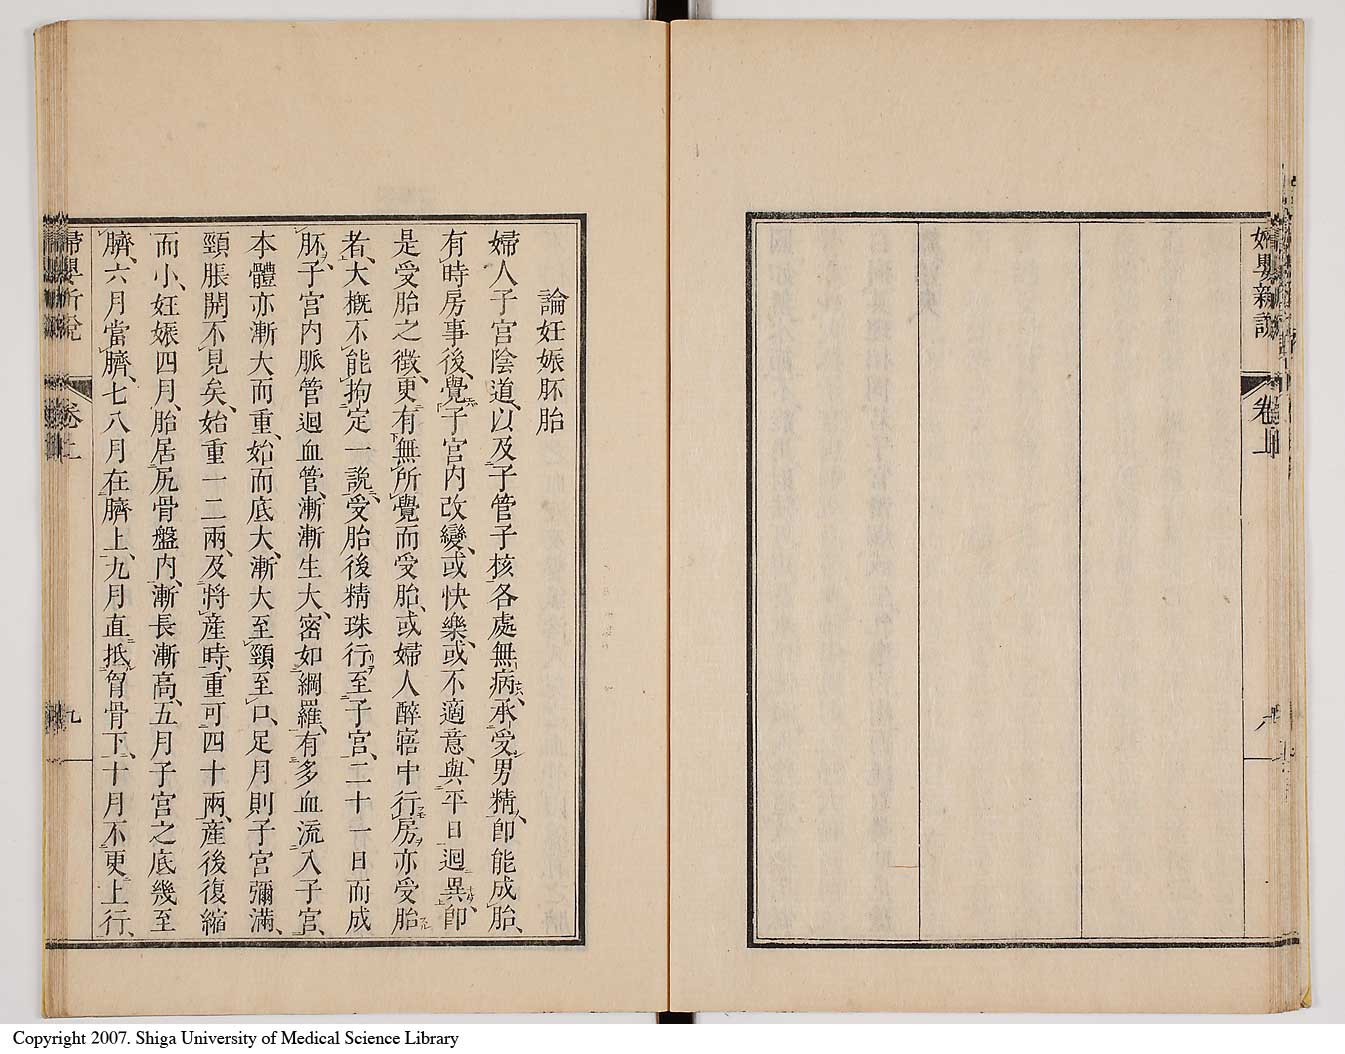 婦嬰新說
卷上
八
論妊娠胚胎
婦人子宮陰道、以及子管子核各處無病、承受男精、卽能成胎、
有時房事後、覺子宮內改變、或快樂、或不適意、與平日迥異、卽
是受胎之徵、更有無所覺而受胎、或婦人醉寤中行房亦受胎
者、大槪不能拘定一說、受胎後精珠行至子宮、二十一日而成
胚、子宮內脈管迴血管、漸漸生大、密如綱羅、有多血流入子宮、
本體亦漸大而重、始而底大、漸大至頸至口、足月則子宮彌滿、
頸脹開不見矣、始重一二兩、及將產時、重可四十兩、產後復縮
而小、妊娠四月、胎居尻骨盤內、漸長漸高、五月子宮之底幾至
臍、六月當臍、七八月在臍上、九月直抵胷骨下、十月不更上行、
婦嬰新說
卷上
九
Copyright 2007. Shiga University of Medical Science Library